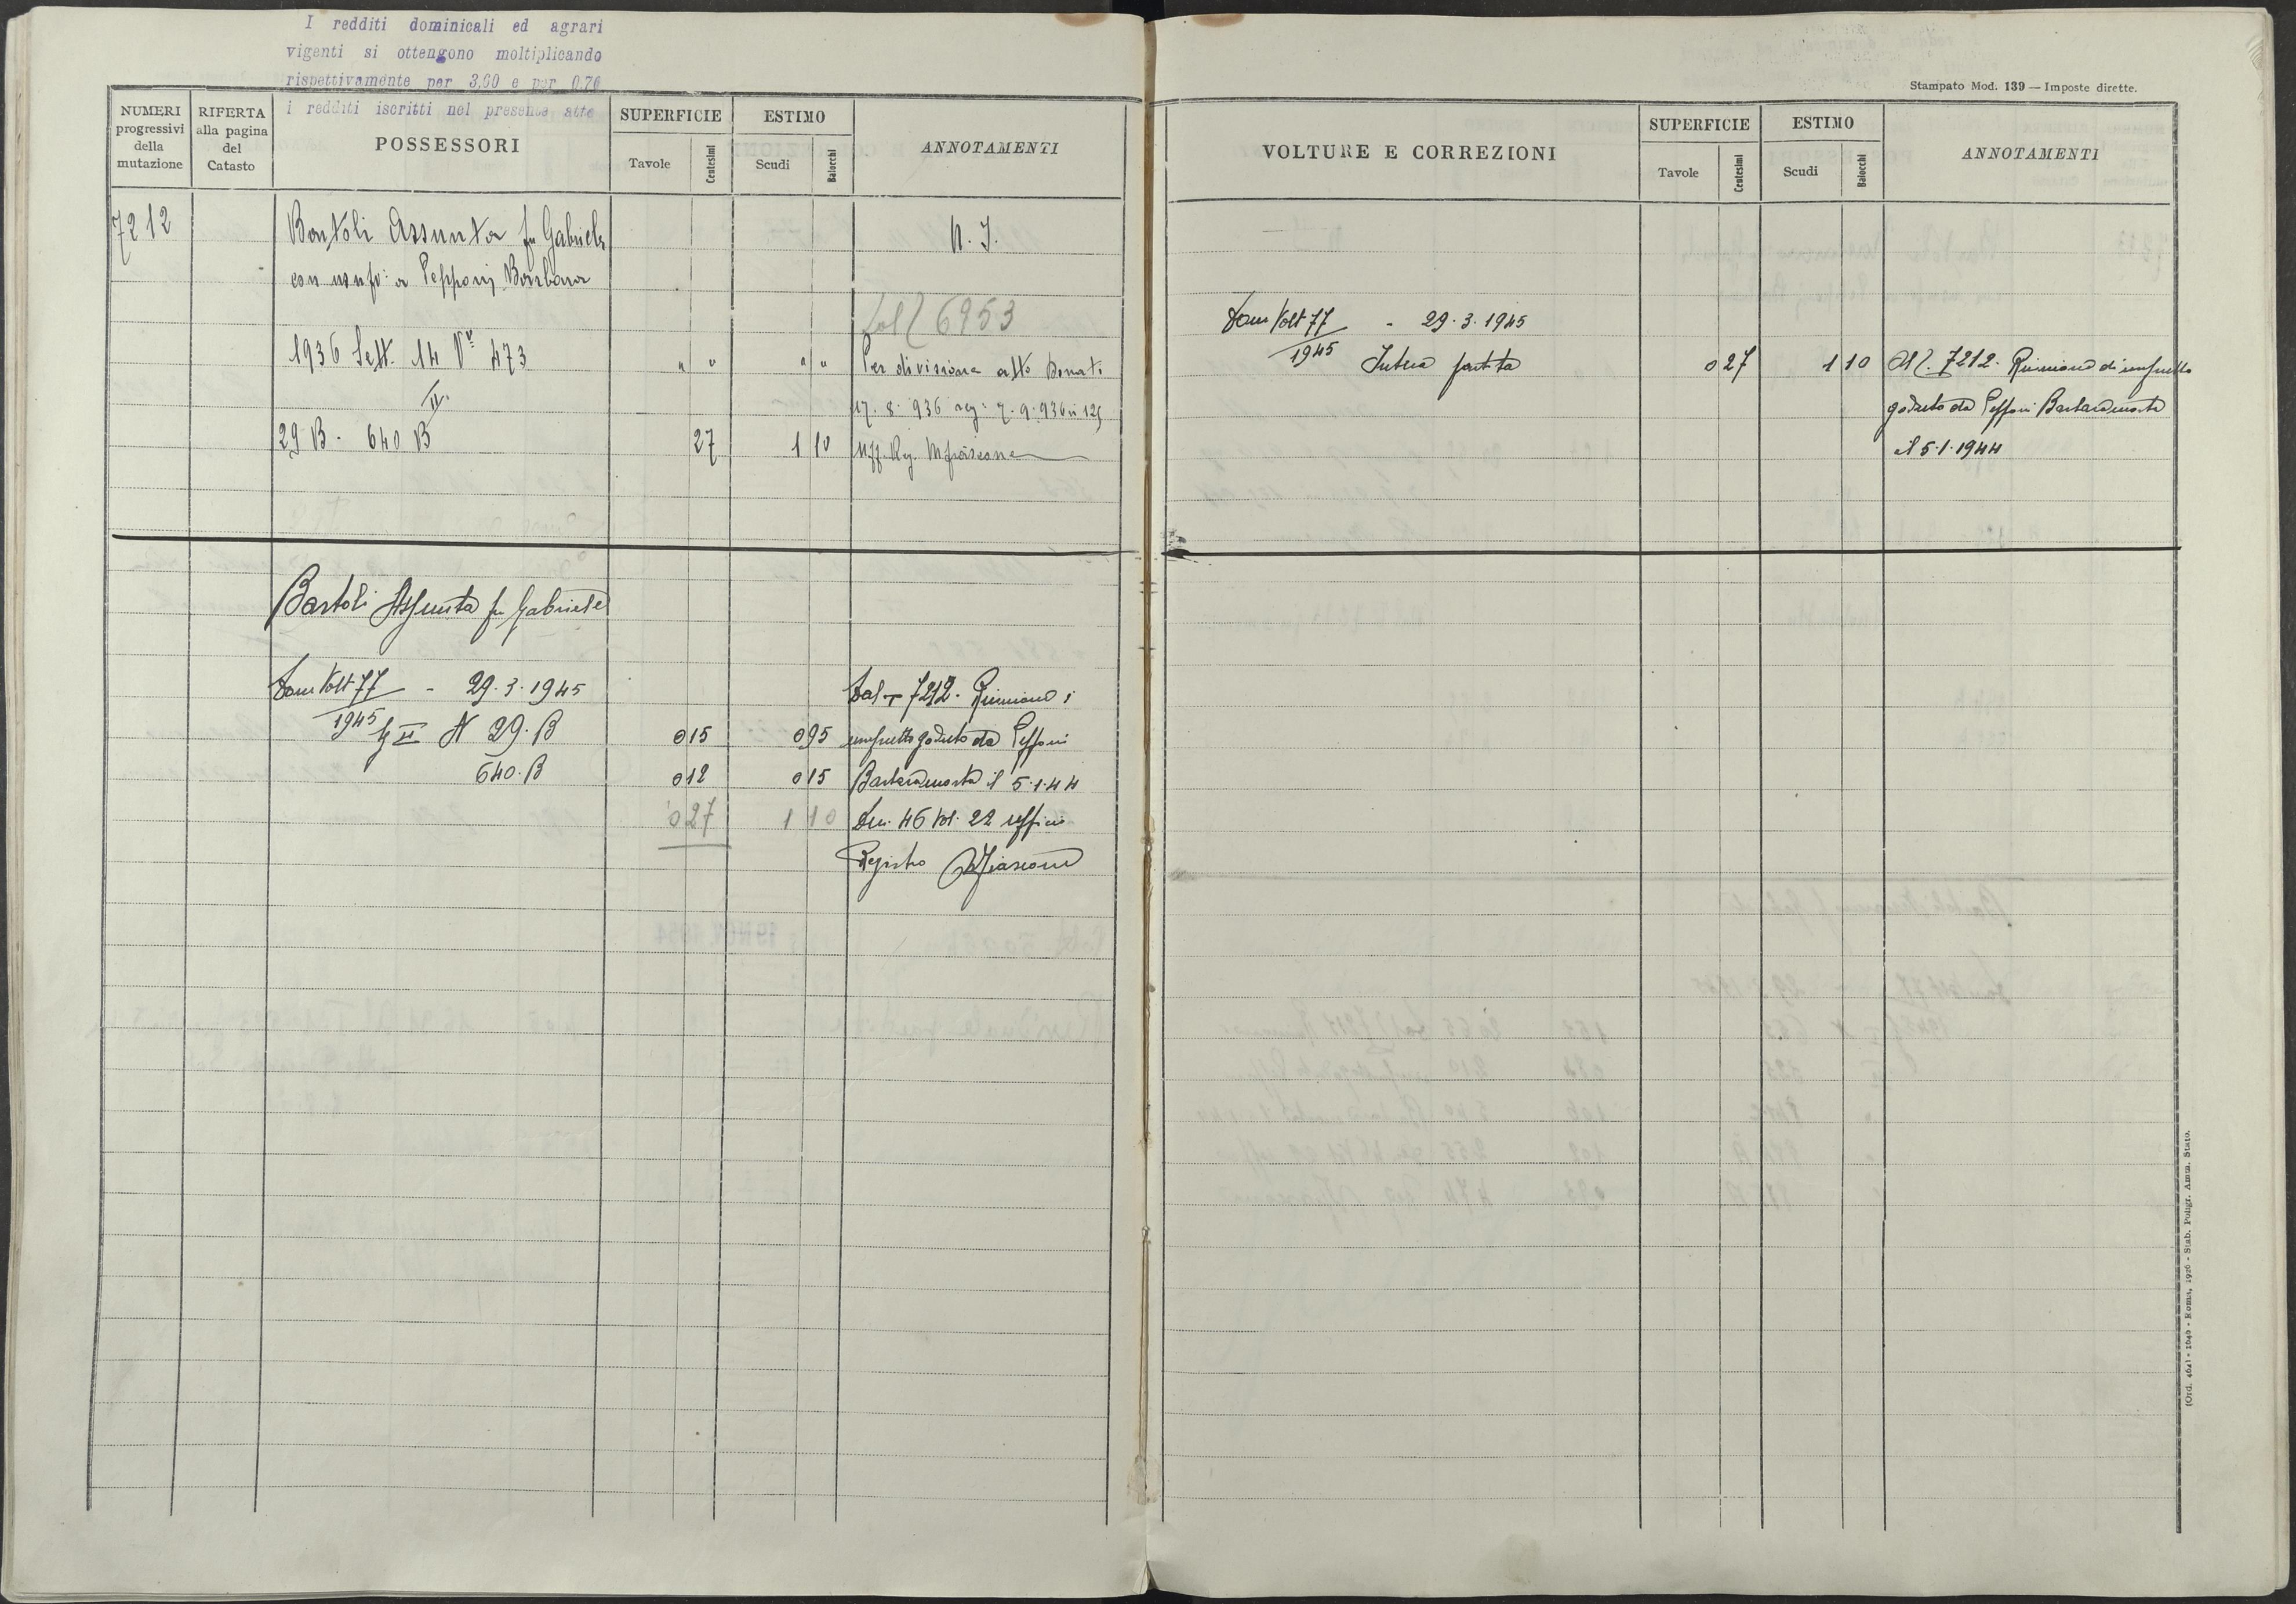 I redditi dominicali ed agrari
vigenti si ottengono moltiplicando
rispettivamente per 3,60 e per 0,76
i redditi iscritti nel presente atto
NUMERI progressivi della mutazione
RIFERTA alla pagina del Catasto
POSSESSORI
SUPERFICIE
Tavole
Centesimi
ESTIMO
Scudi
Baiocchi
ANNOTAMENTI
7212
Bartoli Assunta fu Gabriele
N. I.
con usufº a Pepponi Barbara
dal 6953
1936 Sett. 14 Vª 473 " " " " Per divisione atto Donati
II.
17. 8. 936 reg: 7. 9. 936 n 125
29 B - 640 B 27 1 10 Uff. Reg. Mfiascone
Bartoli Assunta fu Gabriele
Dom Volt 77 - 29.3.1945 Dal 7212. Riunione
1945 II N 29. B 015 095 usufrutto goduto da Pepponi
640. B 012 015 Barbara morta il 5.1.44
027 1 10 Den. 46 Vol. 22 ufficio
Registro Mfiascone
Stampato Mod. 139 — Imposte dirette.
VOLTURE E CORREZIONI
SUPERFICIE
Tavole
Centesimi
ESTIMO
Scudi
Baiocchi
ANNOTAMENTI
Dom Volt 77 - 29.3.1945
1945 Intera partita 027 1 10 Al 7212. Riunione di usufrutto
goduto da Pepponi Barbara morta
il 5.1.1944
(Ord. 462) - 1646 - Roma, 1926 - Stab. Poligr. Amm. Stato.